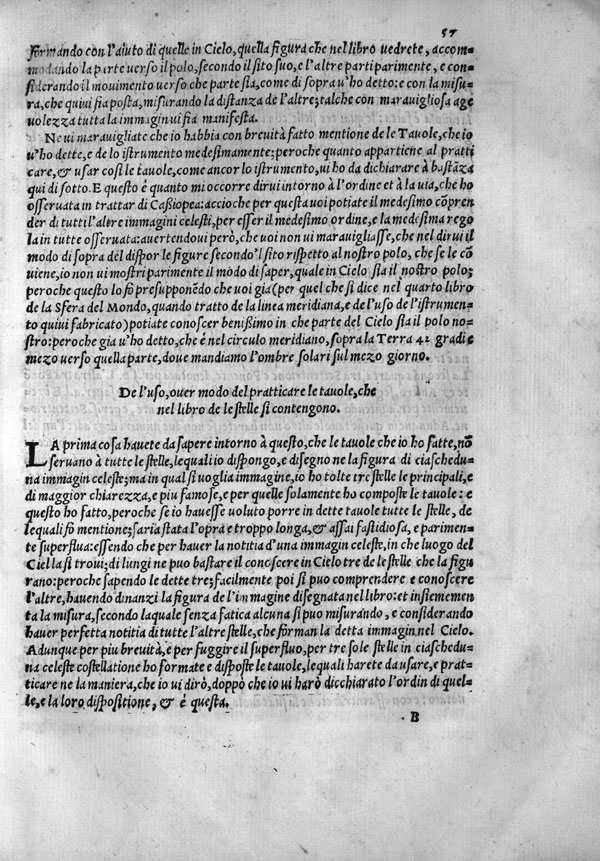 57
formando con l'aiuto di quelle in Cielo, quella figura che nel libro vedrete, accom
modando la parte verso il polo, secondo il sito suo, e l'altre parti parimente, e con-
siderando il movimento verso che parte sia, come di sopra u'ho detto: e con la misu-
ra, che quivi sia posta, misurando la distanza de l'altre; talche con maravigliosa age
volezza tutta la immagin ui fia manifesta.
Ne ui maravigliate che io habbia con brevità fatto mentione de le Tavole, che io
u'ho dette, e de lo istrumento medesimamente; peroche quanto appartiene al pratti
care, & usar cosi le tavole, come ancor lo istrumento, ui ho da dichiarare à bastāza
qui di sotto. E questo è quanto mi occorre dirui intorno à l'ordine et à la uia, che ho
osservata in trattar di Caßiopea: accioche per questa uoi potiate il medesimo cōpren
der di tutti l'altre immagini celesti, per esser il medesimo ordine, e la medesima rego
la in tutte osservata: avertendoui però, che uoi non ui maravigliasse, che nel dirui il
modo di sopra del dispor le figure secondo'l sito rispetto al nostro polo, che se le cō
uiene, io non ui mostri parimente il modo di saper, quale in Cielo sia il nostro polo;
peroche questo lo fò presupponēdo che uoi gia (per quel che si dice nel quarto libro
de la Sfera del Mondo, quando tratto de la linea meridiana, e de l'uso de l'istrumen-
to quivi fabricato) potiate conoscer benißimo in che parte del Cielo sia il polo no-
stro: peroche gia u'ho detto, che è nel circulo meridiano, sopra la Terra 42 gradi e
mezo verso quella parte, doue mandiamo l'ombre solari sul mezo giorno.
De l'uso, ouer modo del pratticare le tavole, che
nel libro de le stelle si contengono.
LA prima cosa havete da sapere intorno à questo, che le tavole che io ho fatte, nō
servano à tutte le stelle, lequali io dispongo, e disegno ne la figura di ciaschedu-
na immagin celeste; ma in qual si uoglia immagine, io ho tolte tre stelle le principali, e
di maggior chiarezza, e piu famose, e per quelle solamente ho composte le tavole: e
questo ho fatto, peroche se io havesse uoluto porre in dette tavole tutte le stelle, de
le quali fò mentione; saria stata l'opra e troppo longa, & assai fastidiosa, e parimen-
te superflua: essendo che per hauer la notitia d'una immagin celeste, in che luogo del
Ciel la si troui; di lungi ne puo bastare il conoscere in Cielo tre de le stelle che la figu
rano: peroche sapendo le dette tre; facilmente poi si puo comprendere e conoscere
l'altre, hauendo dinanzi la figura de l'immagine disegnata nel libro: et insiememen
ta la misura, secondo laquale senza fatica alcuna si puo misurando, e considerando
hauer perfetta notitia di tutte l'altre stelle, che forman la detta immagin nel Cielo.
Adunque per piu brevità, e per fuggire il superfluo, per tre sole stelle in ciaschedu-
na celeste costellatione ho formate e disposte le tavole, lequali harete da usare, e prat-
ticare ne la maniera, che io ui dirò, doppò che io ui harò dicchiarato l'ordin di quel-
le, e la loro dispositione, & è questa.
B